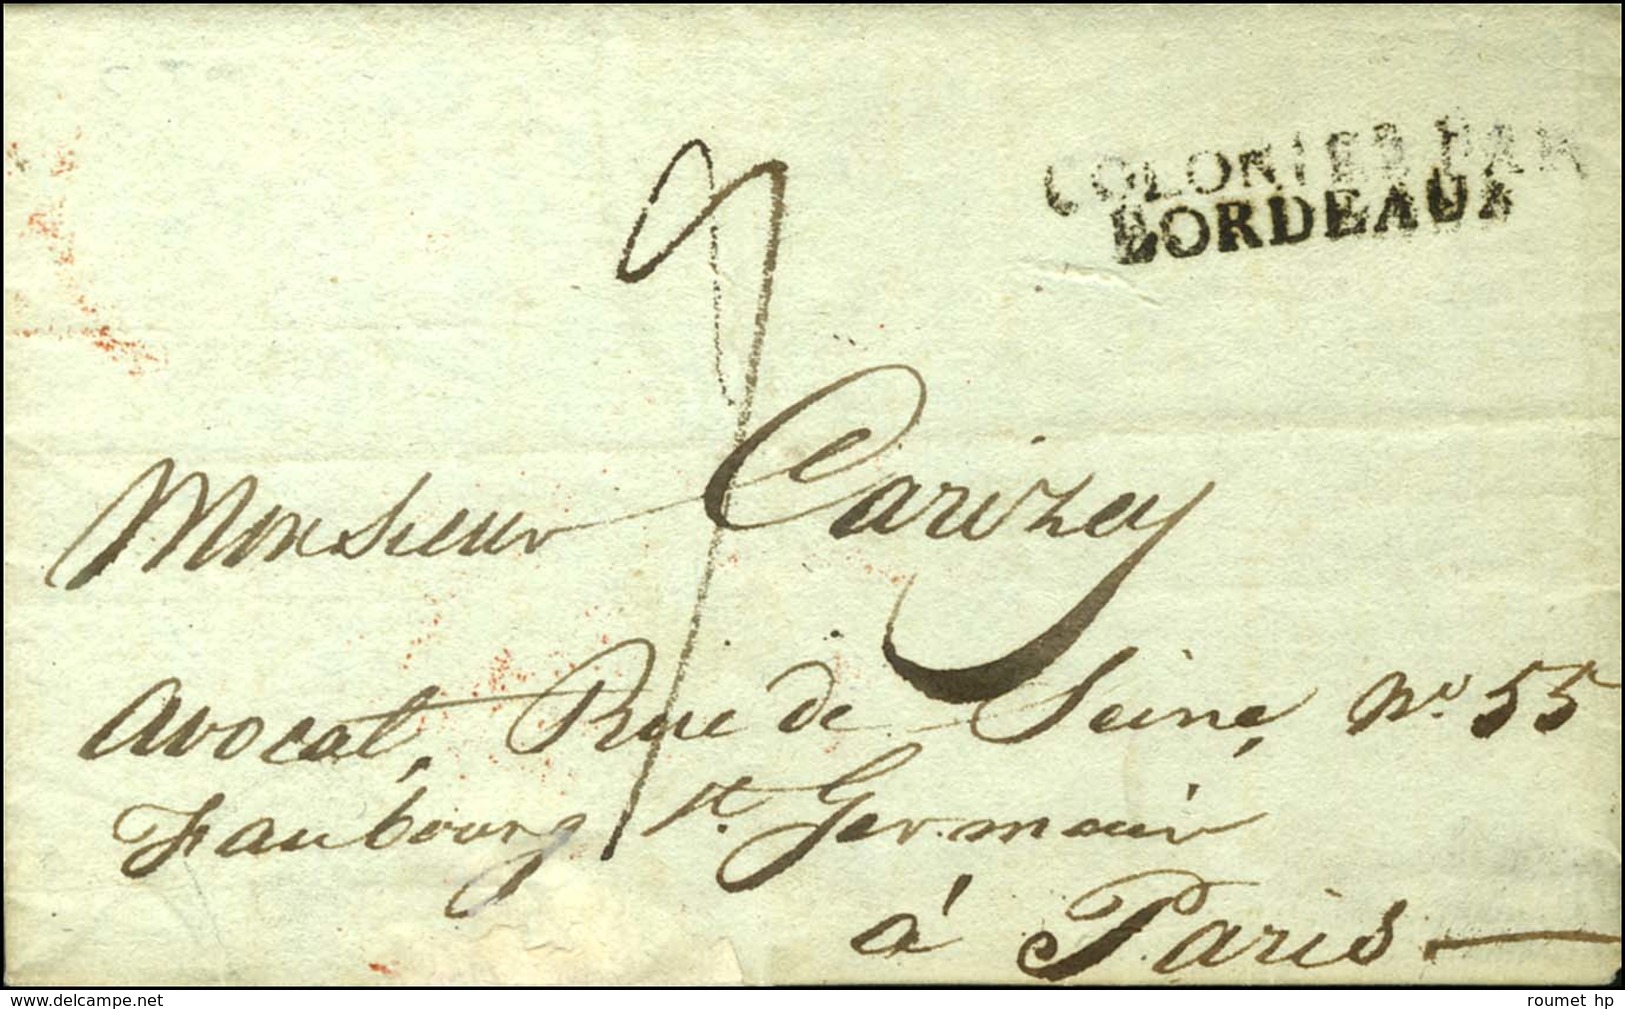 COLONIES PAR
BORDEAUX
Monsieur Carizey
Avocat, Rue de Seine, No. 55
Faubourg St. Germain
à Paris
www.delcampe.net
roumet hp